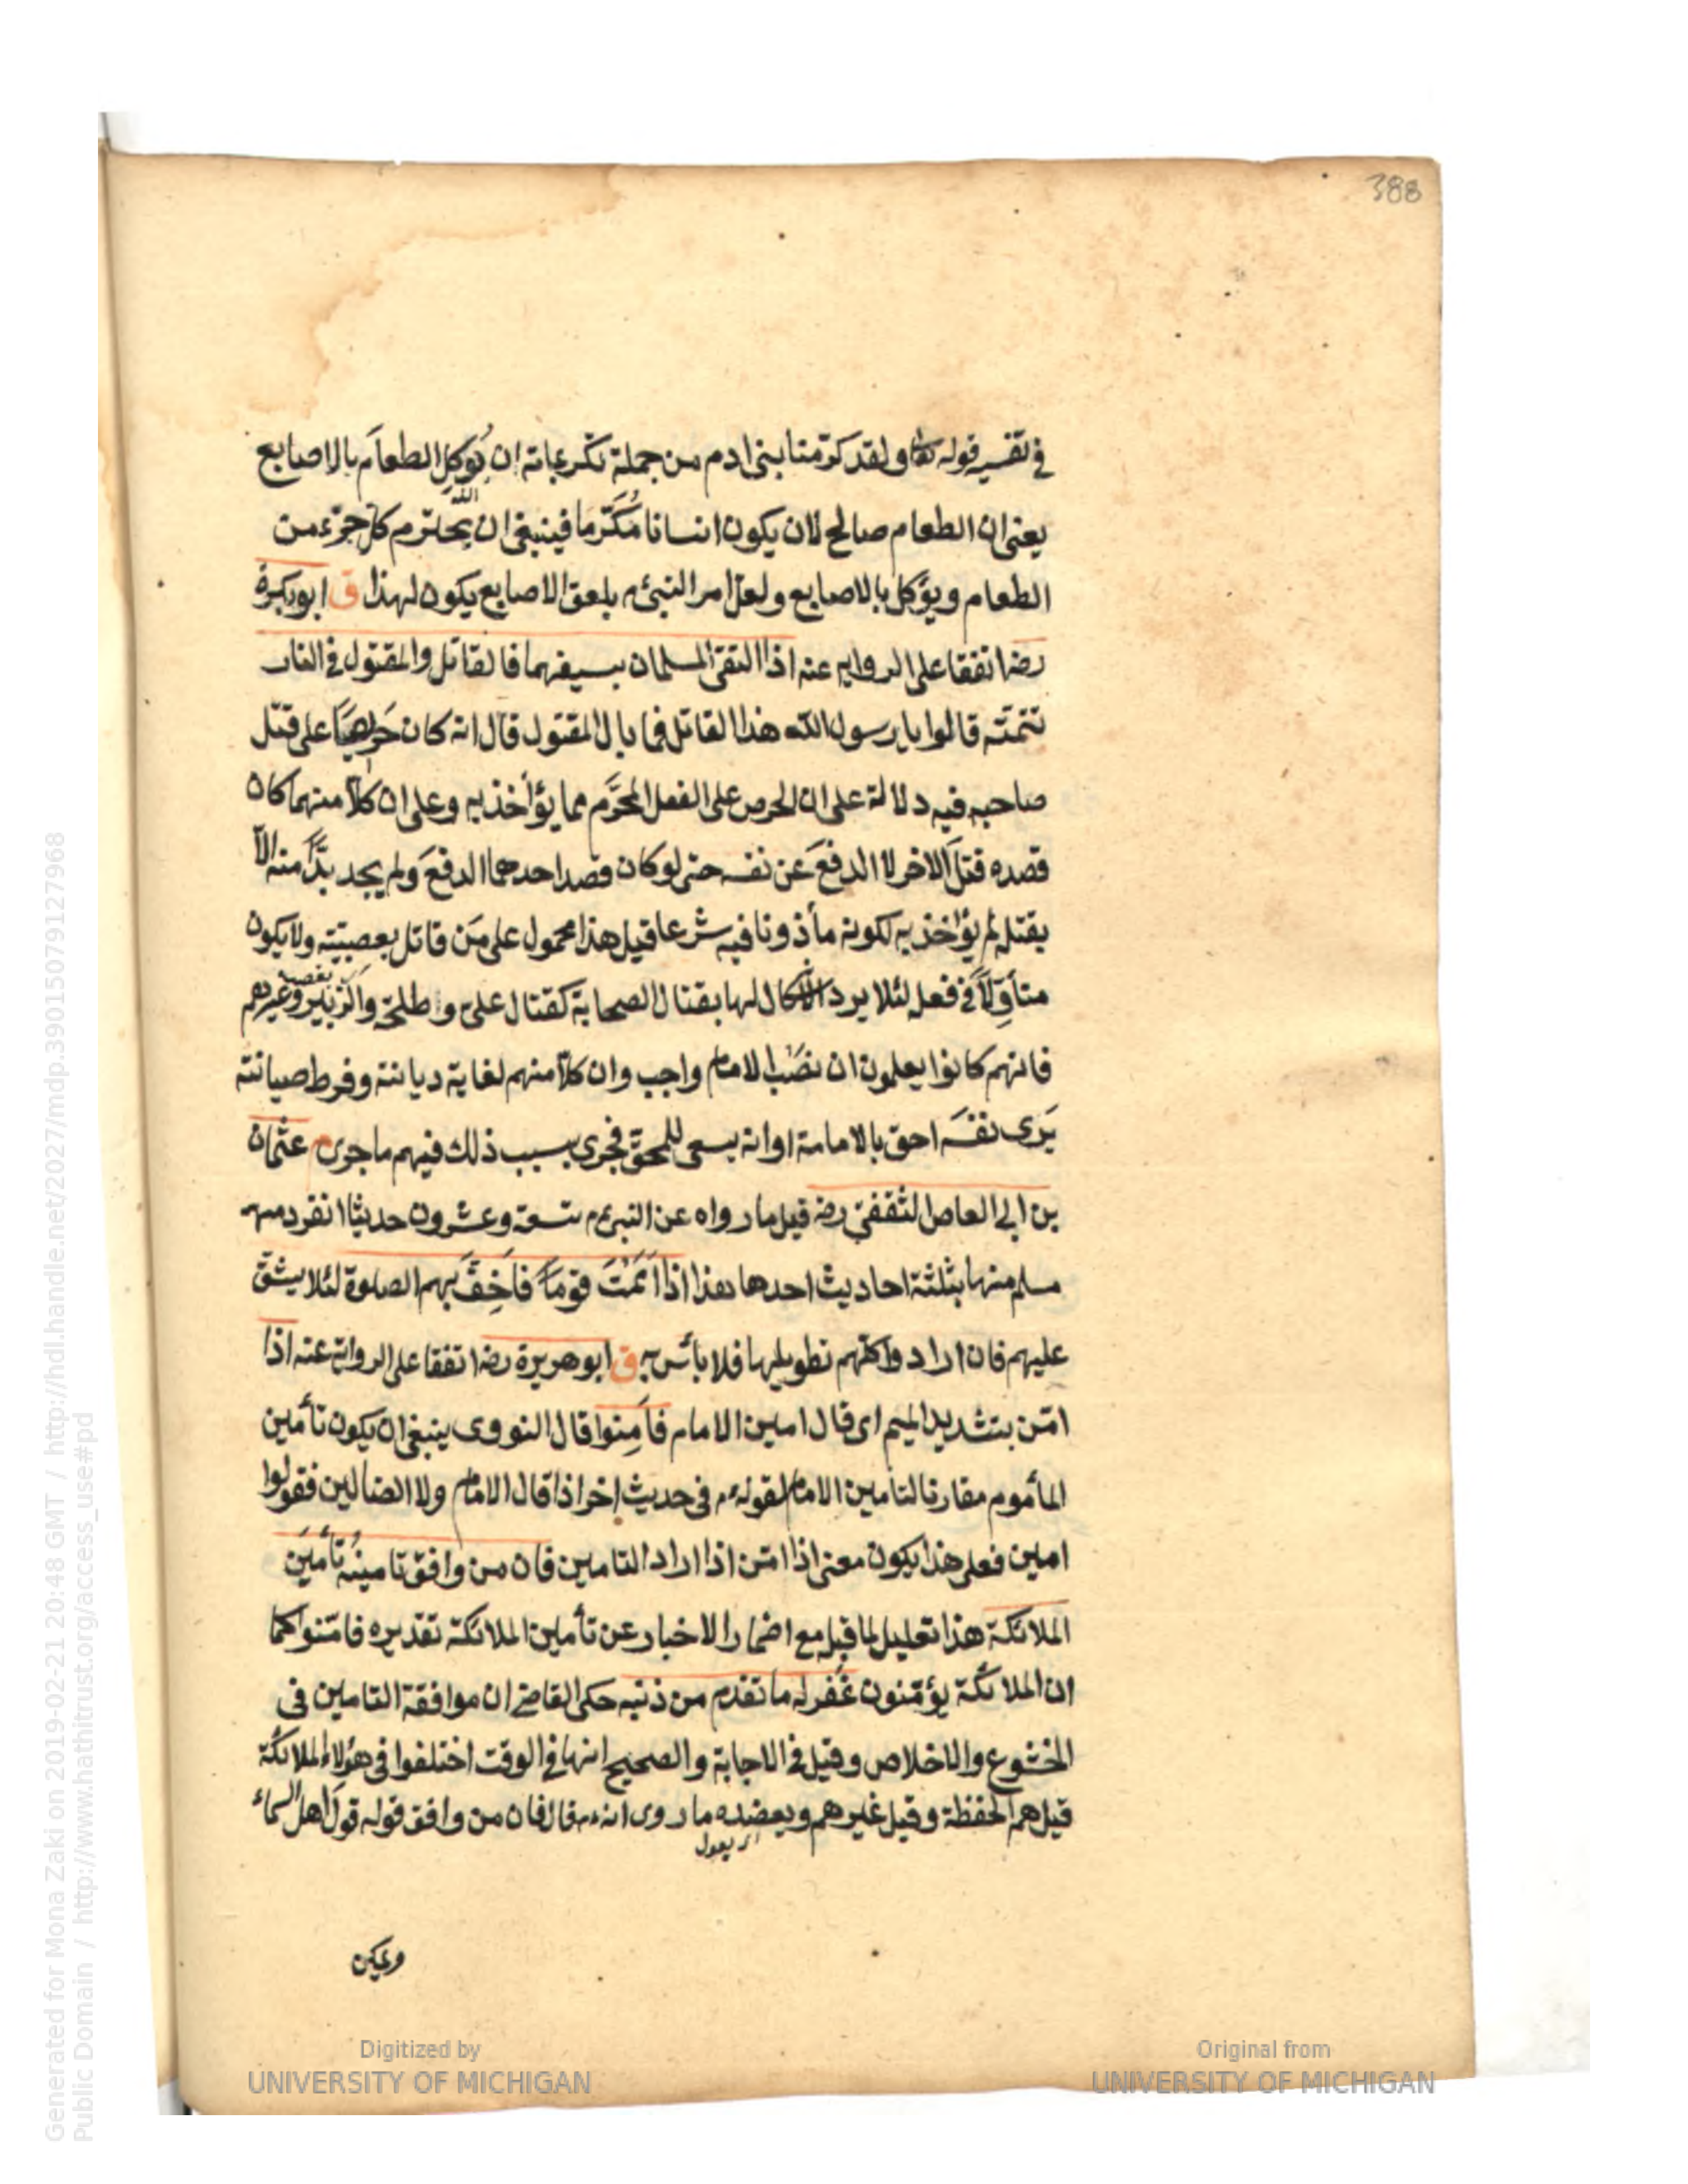 388
في تفسير قوله تعا ولقد كرّمنا بنى ادم من جملة تكريماته ان يُوكل الطعامَ بالاصابع
يعنى ان الطعام صالح لان يكون انسانا مُكَرَّما فينبغى ان يحترم كل جزء من
الطعام ويؤكل بالاصابع ولعل امر النبىّ م بلعق الاصابع يكون لهذا ق ابو بكرة
رضه اتفقا على الروايه عنه اذا التقى المسلمان بسيفهما فالقاتل والمقتول في النار
تتمته قالوا يا رسول الله هذا القاتل فما بال المقتول قال انه كان حَريصًا على قتل
صاحبه فيه دلالة على ان الحرص على الفعل المحرَّم مما يؤاخذ به وعلى ان كلاًّ منهما كان
قصده قتلَ الاخر لا الدفعَ عن نفسه حتى لو كان قصد احدهما الدفعَ ولم يجد بدًّا منه الّا
بقتله لم يؤاخذ به لكونه مأذونا فيه شرعا قيل هذا محمول على مَن قاتل بعصبيّته ولا يكون
متأوِّلاً في فعله لئلا يرد الاشكال لها بقتال الصحابة كقتال علىّ و اطلحة والزبير وغيرهم
فانهم كانوا يعلمون ان نصْب الامام واجب وان كلاًّ منهم لغاية ديانته وفرط صيانته
يَرى نفسَه احق بالامامة او انه يسعى للمحقّ فجرى بسبب ذلك فيهم ما جرى م عثمان
بن ابى العاص الثقفىّ رضه قيل ما رواه عن النبى م تسعة وعشرون حديثا انفرد
مسلم منها بثلثة احاديث احدها هذا اذا اَمَمْتَ قوماً فاَخِفَّ بهم الصلوة لئلا يشقّ
عليهم فان اراد واكلهم تطويلها فلا بأس به ق ابو هريرة رضه اتفقا على الرواية عنه اذا
امّن بتشديد الميم اى قال امين الامام فاَمِنوا قال النووى ينبغى ان يكون تأمين
المأموم مقارنا لتامين الامام لقوله م فى حديث اخر اذا قال الامام ولا الضالين فقولوا
امين فعلى هذا يكون معنى اذا امّن اذا اراد التامين فان من وافق تامينُه تأمينَ
الملائكة هذا تعليل لما قبله مع اضمار الاخبار عن تأمين الملائكة تقديره فامّنوا كما
ان الملائكة يؤمّنون غُفر له ما تقدم من ذنبه حكى القاضى ان موافقة التامين فى
الخشوع والاخلاص وقيل في الاجابة والصحيح انها في الوقت اختلفوا فى هؤلاء الملائكة
قيل هم الحفظة وقيل غيرهم ويعضده ما روى انه م قال فان من وافق قوله قولَ اهل السماء
ويمكن
Digitized by UNIVERSITY OF MICHIGAN
Original from UNIVERSITY OF MICHIGAN
Generated for Mona Zaki on 2019-02-21 20:48 GMT / http://hdl.handle.net/2027/mdp.39015079127968
Public Domain / http://www.hathitrust.org/access_use#pd